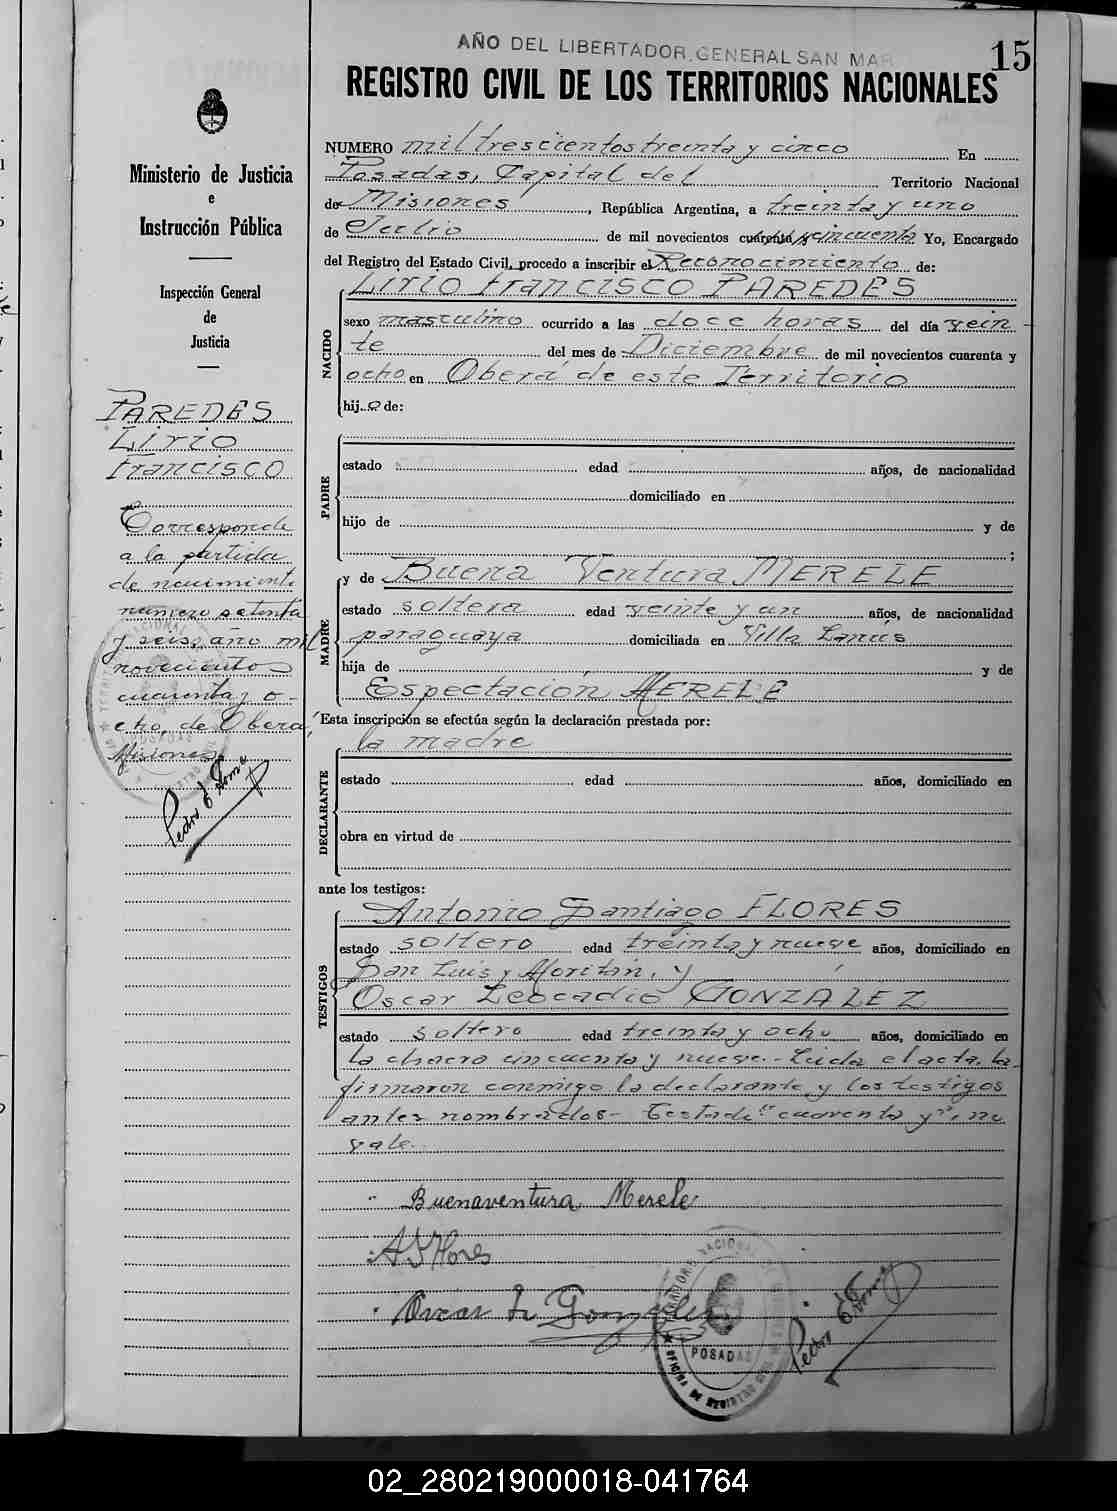 AÑO DEL LIBERTADOR GENERAL SAN MAR
15
REGISTRO CIVIL DE LOS TERRITORIOS NACIONALES
Ministerio de Justicia
e
Instrucción Pública
Inspección General
de
Justicia
PAREDES
Lirio
Francisco
Corresponde
a la partida
de nacimiento
número setenta
y seis, año mil
novecientos
cuarenta y o-
cho, de Oberá,
Misiones
Pedro E. Poma
NUMERO mil trescientos treinta y cinco En
Posadas, Capital del Territorio Nacional
de Misiones, República Argentina, a treinta y uno
de Julio de mil novecientos cuarenta y cincuenta Yo, Encargado
del Registro del Estado Civil, procedo a inscribir el Reconocimiento de:
NACIDO
Lirio Francisco PAREDES
sexo masculino ocurrido a las doce horas del día vein-
te del mes de Diciembre de mil novecientos cuarenta y
ocho en Oberá de este Territorio
hij o de:
PADRE
estado edad años, de nacionalidad
domiciliado en
hijo de y de
;
MADRE
y de Buena Ventura MERELE
estado soltera edad veinte y un años, de nacionalidad
paraguaya domiciliada en Villa Lanús
hija de y de
Espectación MERELE
Esta inscripción se efectúa según la declaración prestada por:
la madre
DECLARANTE
estado edad años, domiciliado en
obra en virtud de
ante los testigos:
TESTIGOS
Antonio Santiago FLORES
estado soltero edad treinta y nueve años, domiciliado en
San Luis y Moritán, y
Oscar Leocadio GONZALEZ
estado soltero edad treinta y ocho años, domiciliado en
la chacra cincuenta y nueve.- Leida el acta, la
firmaron conmigo la declarante y los testigos
antes nombrados- Testado "cuarenta y", no
vale.
Buenaventura Merele
A S Flores
Oscar L. Gonzalez
POSADAS
OFICINA DE REGISTRO CIVIL
Pedro E. Poma
02_280219000018-041764